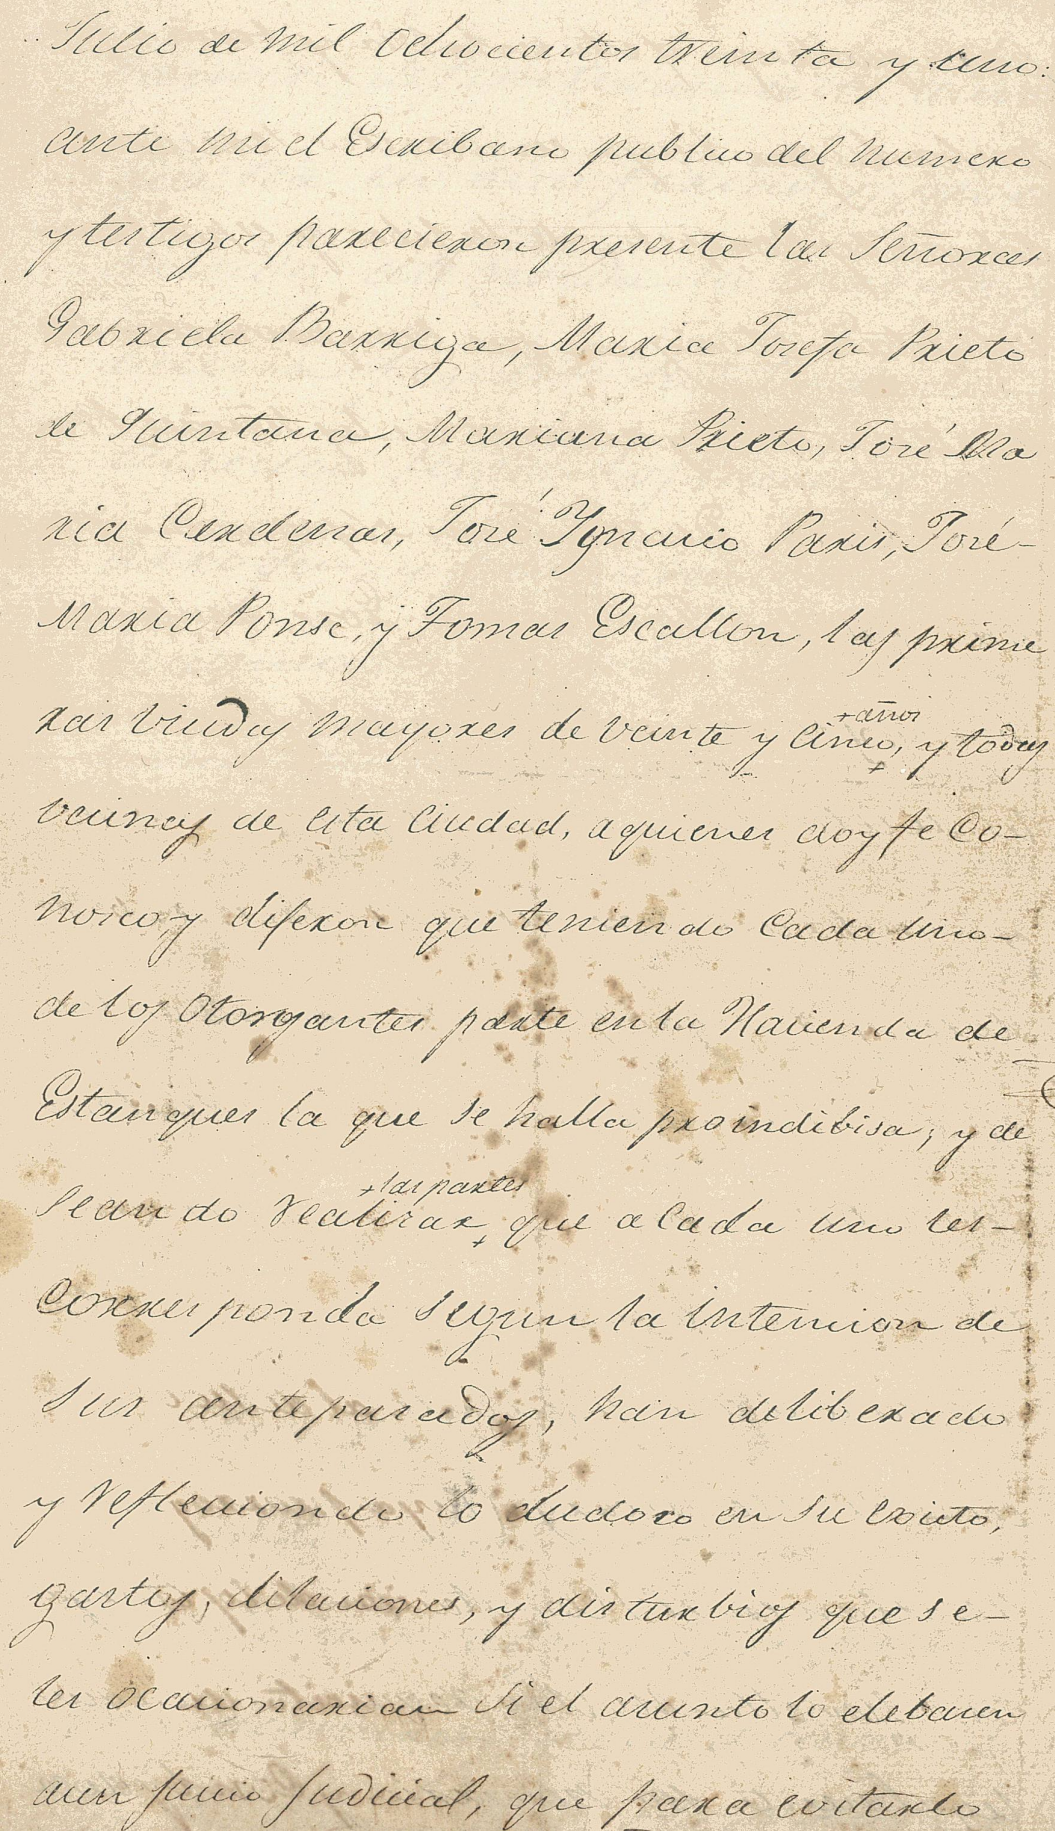 Julio de mil ochocientos treinta y uno:
ante mi el Escribano publico del numero
y testigos parecieron presente las Señoras
Gabriela Barriga, Maria Josefa Prieto
de Quintana, Mariana Prieto, José Ma
ria Cardenas, José Ygnacio Paris, José-
Maria Ponse, y Tomas Escallon, las prime
ras viudas mayores de veinte y cinco, +años y todos
vecinos de esta Ciudad, aquienes doy fe co-
nosco, y dijeron que teniendo cada uno-
de los Otorgantes parte en la Hacienda de
Estanques la que se halla proindibisa; y de
seando realisar +las partes que a cada uno les-
corresponda segun la intencion de
sus antepasados, han deliberado
y reflecionado lo dudoso en su exsito,
gastos, dilaciones, y disturbios que se-
les ocacionarian si el asunto lo elebasen
aun juicio judicial, que para evitarlo